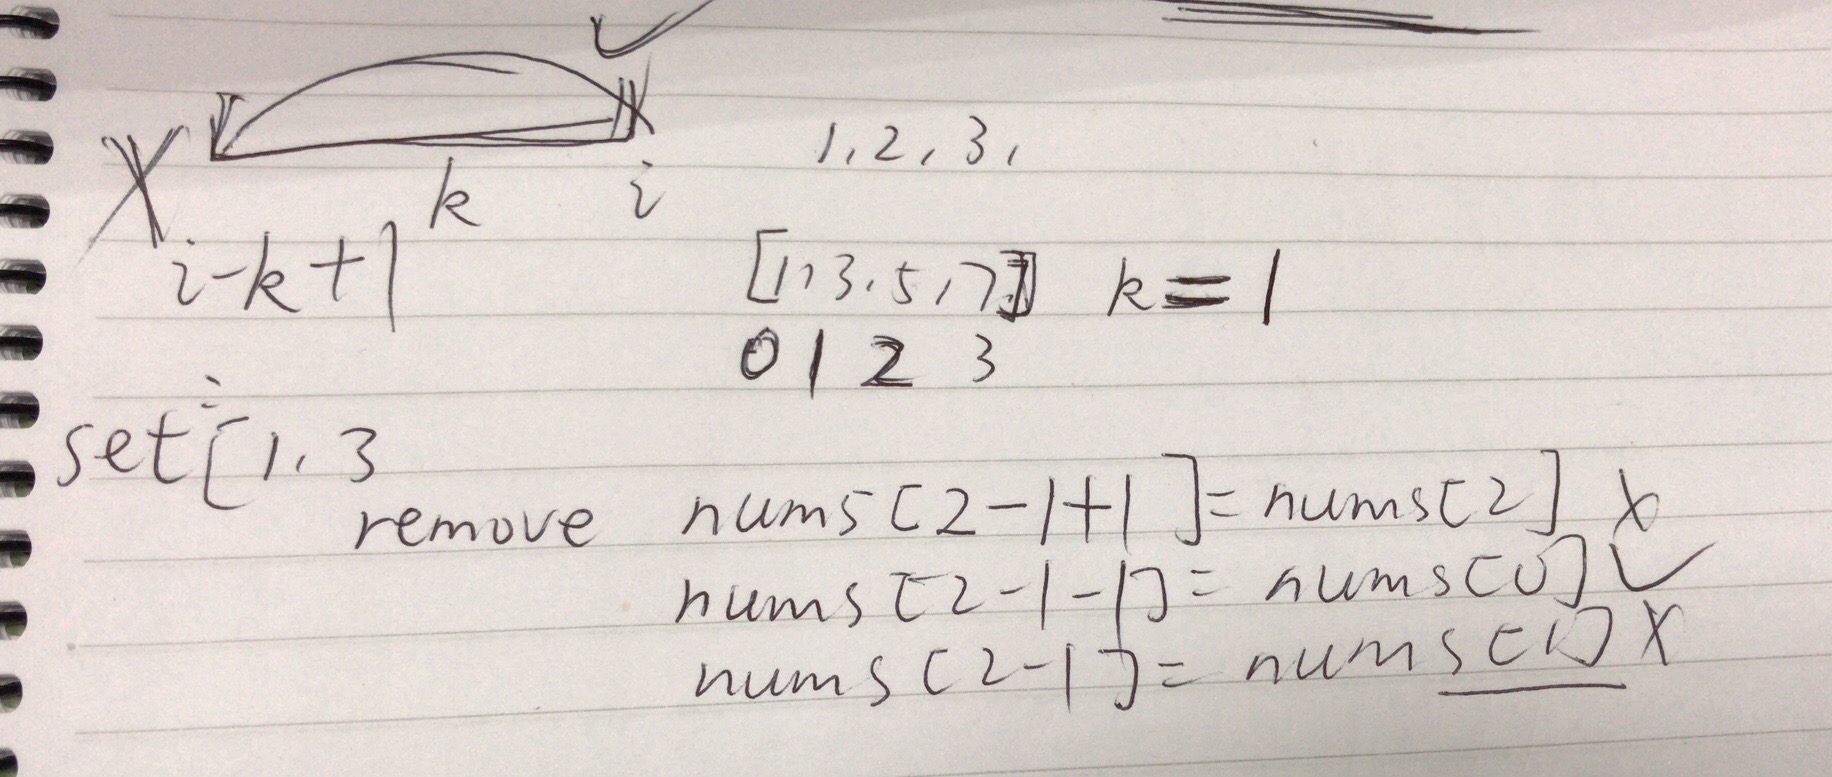 1, 2, 3,
k i
i-k+1
[1, 3, 5, 7] k = 1
0 1 2 3
set [1, 3
remove nums [2-1+1] = nums[2] X
nums [2-1-1] = nums[0] ✓
nums [2-1] = nums[1] X